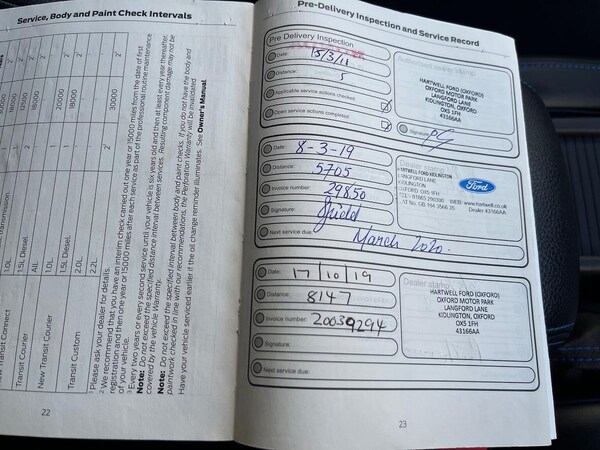 Service, Body and Paint Check Intervals
1.0L
Transit Courier
1.5L Diesel
New Transit Courier
All
1.0L
1.5L Diesel
Transit Custom
2.0L
2.2L
20000
18000
30000
1 Please ask your dealer for details.
2 We recommend that you have an interim check carried out one year or 15000 miles from the date of first
registration and then one year or 15000 miles after each service as part of the professional routine maintenance
of your vehicle.
3 Every two years or every second service until your vehicle is six years old and then at least every year thereafter.
Note: Do not exceed the specified distance interval between services. Resulting component damage may not be
covered by the vehicle Warranty.
Note: Do not exceed the specified interval between body and paint checks. If you do not have the body and
paintwork checked in line with our recommendations, the Perforation Warranty will be invalidated.
Have your vehicle serviced earlier if the oil change reminder illuminates. See Owner's Manual.
22
Pre-Delivery Inspection and Service Record
Pre Delivery Inspection
Date: 15/3/11
Distance: 5
Applicable service actions checked
Open service actions completed
HARTWELL FORD (OXFORD)
OXFORD MOTOR PARK
LANGFORD LANE
KIDLINGTON, OXFORD
OX5 1FH
43166AA
Signature
Date: 8-3-19
Distance: 5705
Invoice number: 29850
Signature:
Next service due: March 2020.
Dealer stamp
HARTWELL FORD KIDLINGTON
LANGFORD LANE
KIDLINGTON
OXFORD OX5 1FH
Ford
WEB: www.hartwell.co.uk
Dealer 43166AA
Date: 17/10/19
Distance: 8147
Invoice number: 20039294
Signature:
Next service due:
Dealer stamp
HARTWELL FORD (OXFORD)
OXFORD MOTOR PARK
LANGFORD LANE
KIDLINGTON, OXFORD
OX5 1FH
43166AA
23